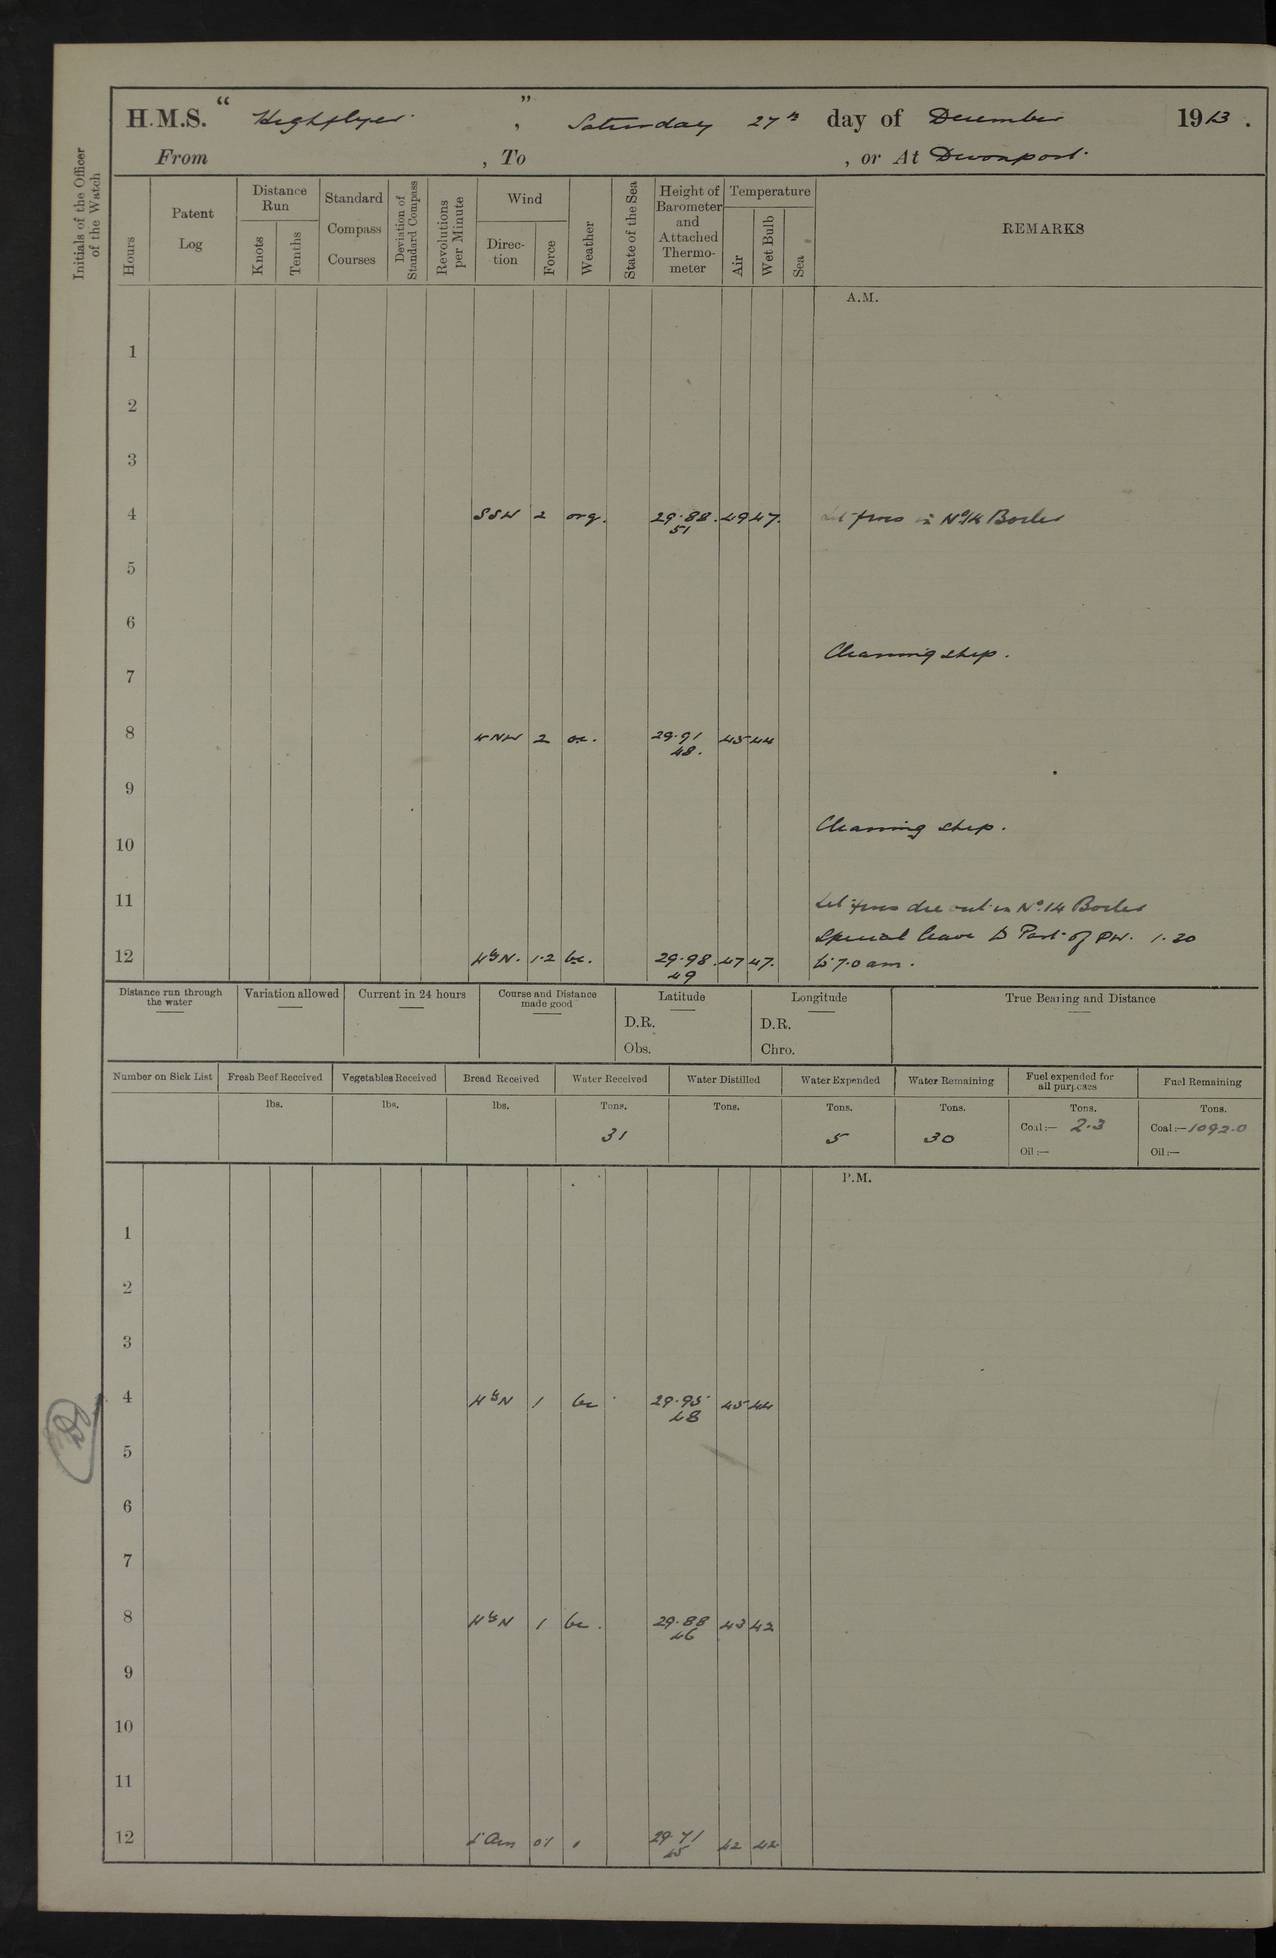 H.M.S. " Highflyer ", Saturday 27th day of December 1913.
From , To , or At Devonport
Initials of the Officer of the Watch
Hours
Patent Log
Distance Run
Knots
Tenths
Standard Compass Courses
Deviation of Standard Compass
Revolutions per Minute
Wind
Direction
Force
Weather
State of the Sea
Height of Barometer and Attached Thermometer
Temperature
Air
Wet Bulb
Sea
REMARKS
A.M.
1
2
3
4 SSW 2 org. 29.88 51 49 47 fires in No 14 Boiler
5
6
Cleaning ship.
7
8 WNW 2 oc. 29.91 48. 45 44
9
Cleaning ship.
10
11 Let fires die out in No. 14 Boiler
Special leave to Part of PW. 1.20
12 WbyN. 1.2 bc. 29.98 49 47 47. to 7.0 am.
Distance run through the water
Variation allowed
Current in 24 hours
Course and Distance made good
Latitude
D.R.
Obs.
Longitude
D.R.
Chro.
True Bearing and Distance
Number on Sick List Fresh Beef Received Vegetables Received Bread Received Water Received Water Distilled Water Expended Water Remaining Fuel expended for all purposes Fuel Remaining
lbs. lbs. lbs. Tons. Tons. Tons. Tons. Tons. Tons.
31 5 30 Coal:— 2.3 Coal:— 1092.0
Oil:— Oil:—
P.M.
1
2
3
4 WbyN 1 bc 29.95 48 45 44
5
6
7
8 WbyN 1 bc. 29.88 46 43 42
9
10
11
12 01 29.71 45 42 42